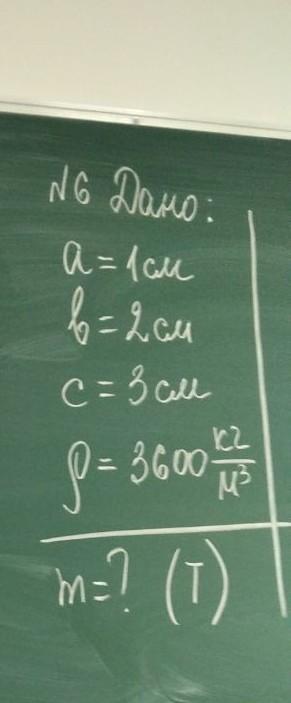 №6 Дано:
a = 1 см
b = 2 см
c = 3 см
ρ = 3600 кг/м³
m = ? (т)